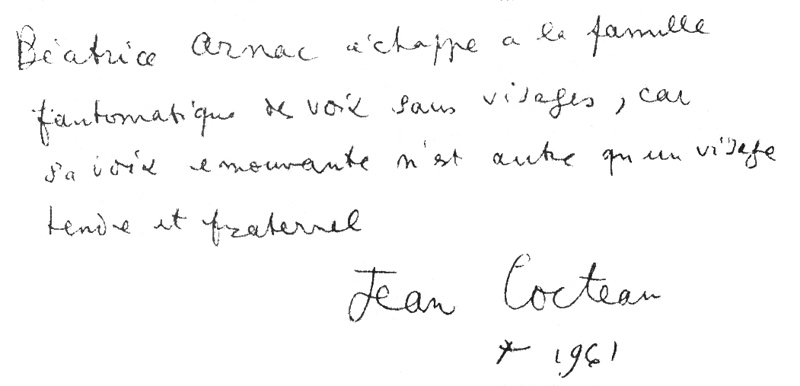 Béatrice Arnac échappe a la famille
fantomatique des voix sans visages, car
sa voix emouvante n'est autre qu'un visage
tendre et fraternel
Jean Cocteau
* 1961